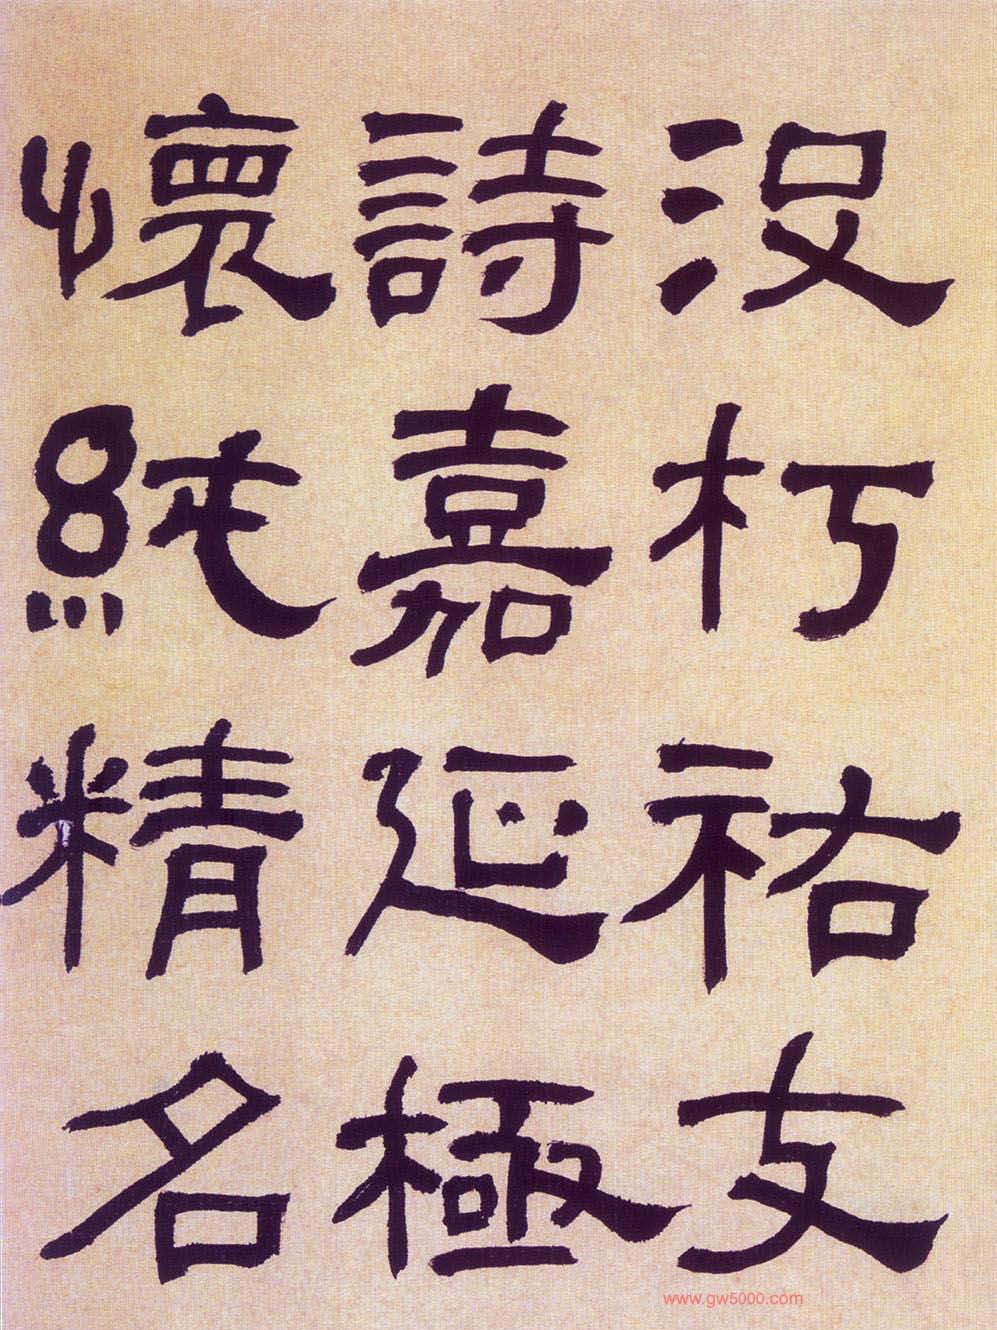 没朽祐支
詩嘉延極
懷純精名
www.gw5000.com